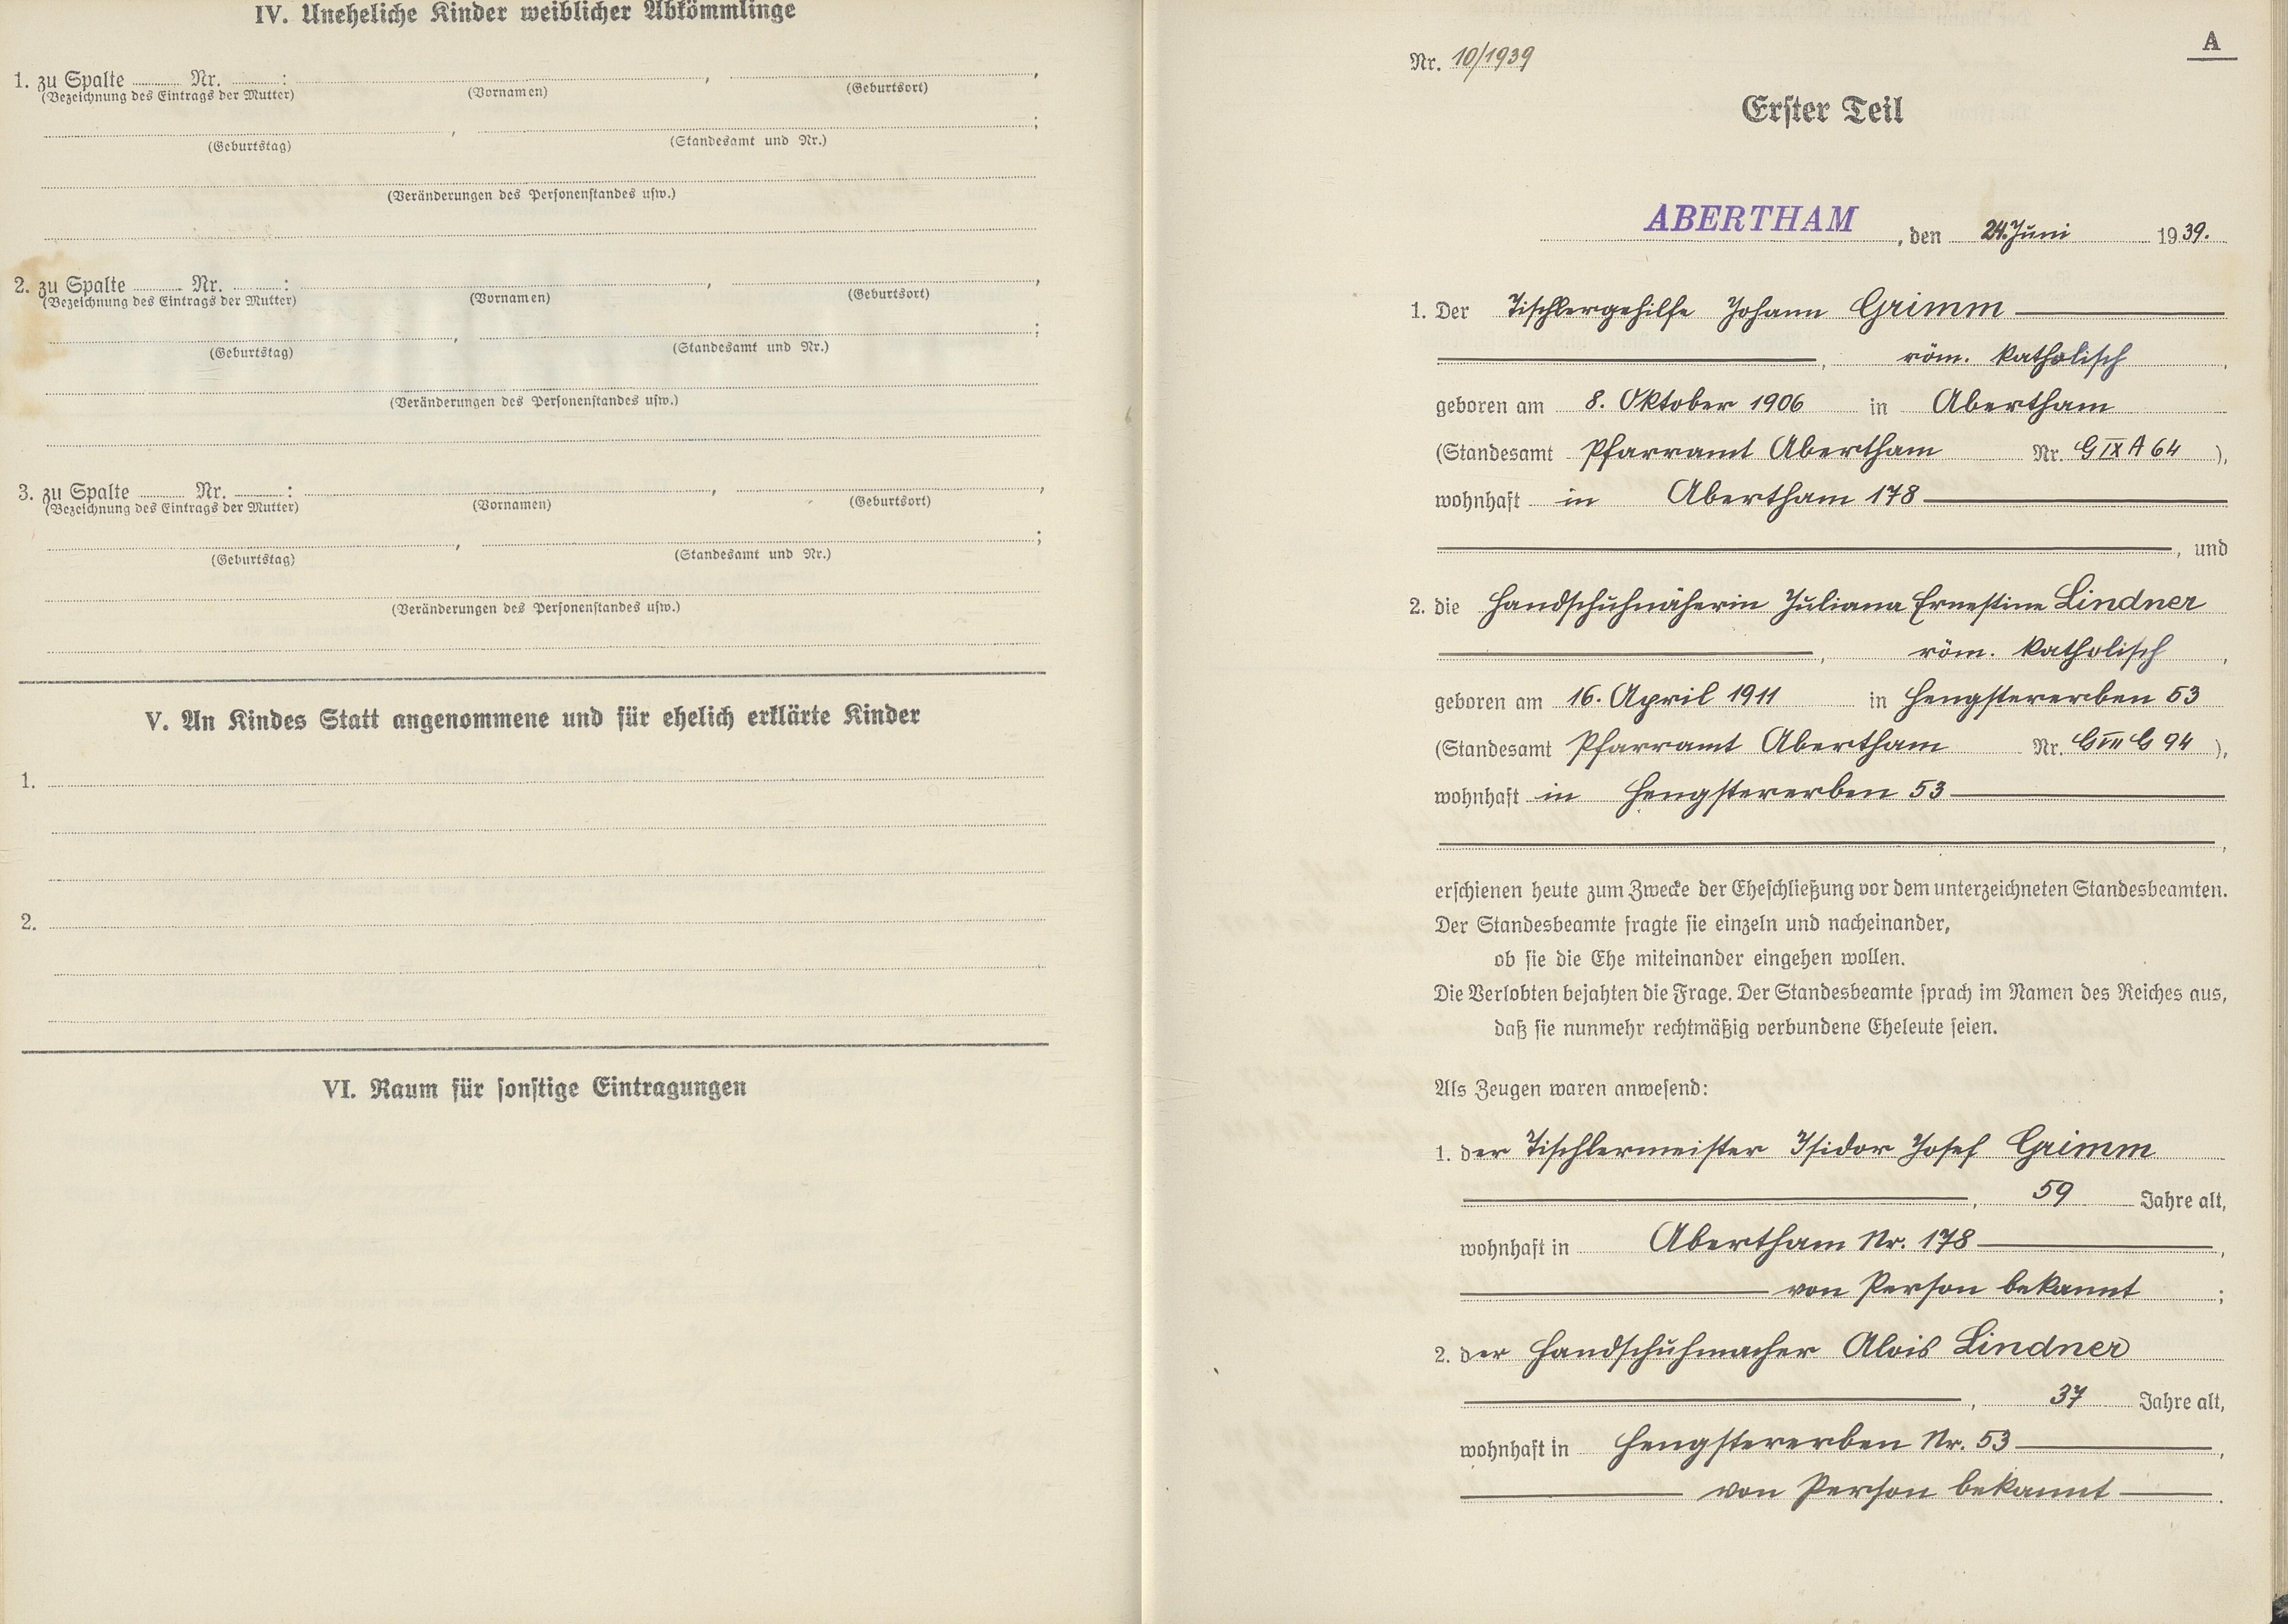 IV. Uneheliche Kinder weiblicher Abkömmlinge
1. zu Spalte ........ Nr. ........: ........, ........,
(Bezeichnung des Eintrags der Mutter) (Vornamen) (Geburtsort)
........, ........;
(Geburtstag) (Standesamt und Nr.)
(Veränderungen des Personenstandes usw.)
2. zu Spalte ........ Nr. ........: ........, ........,
(Bezeichnung des Eintrags der Mutter) (Vornamen) (Geburtsort)
........, ........:
(Geburtstag) (Standesamt und Nr.)
(Veränderungen des Personenstandes usw.)
3. zu Spalte ........ Nr. ........: ........, ........,
(Bezeichnung des Eintrags der Mutter) (Vornamen) (Geburtsort)
........, ........;
(Geburtstag) (Standesamt und Nr.)
(Veränderungen des Personenstandes usw.)
V. An Kindes Statt angenommene und für ehelich erklärte Kinder
1.
2.
VI. Raum für sonstige Eintragungen
A
Nr. 10/1939
Erster Teil
ABERTHAM, den 24. Juni 1939.
1. Der Tischlergehilfe Johann Grimm
, röm. katholisch,
geboren am 8. Oktober 1906 in Abertham
(Standesamt Pfarramt Abertham Nr. G IX A 64),
wohnhaft in Abertham 178
, und
2. die Handschuhnäherin Juliana Ernestine Lindner
, röm. katholisch,
geboren am 16. April 1911 in Hengstererben 53
(Standesamt Pfarramt Abertham Nr. G VII G 94),
wohnhaft in Hengstererben 53
,
erschienen heute zum Zwecke der Eheschließung vor dem unterzeichneten Standesbeamten.
Der Standesbeamte fragte sie einzeln und nacheinander,
ob sie die Ehe miteinander eingehen wollen.
Die Verlobten bejahten die Frage. Der Standesbeamte sprach im Namen des Reiches aus,
daß sie nunmehr rechtmäßig verbundene Eheleute seien.
Als Zeugen waren anwesend:
1. der Tischlermeister Isidor Josef Grimm
, 59 Jahre alt,
wohnhaft in Abertham Nr. 178,
von Person bekannt;
2. der Handschuhmacher Alois Lindner
, 37 Jahre alt,
wohnhaft in Hengstererben Nr. 53,
von Person bekannt.